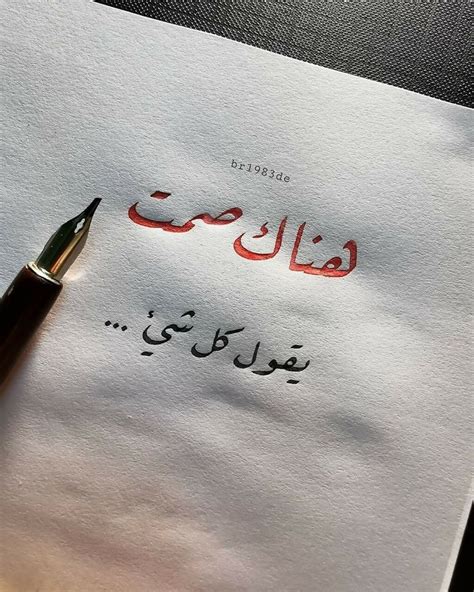 br1983de
هناك صمت
يقول كل شيئ ...